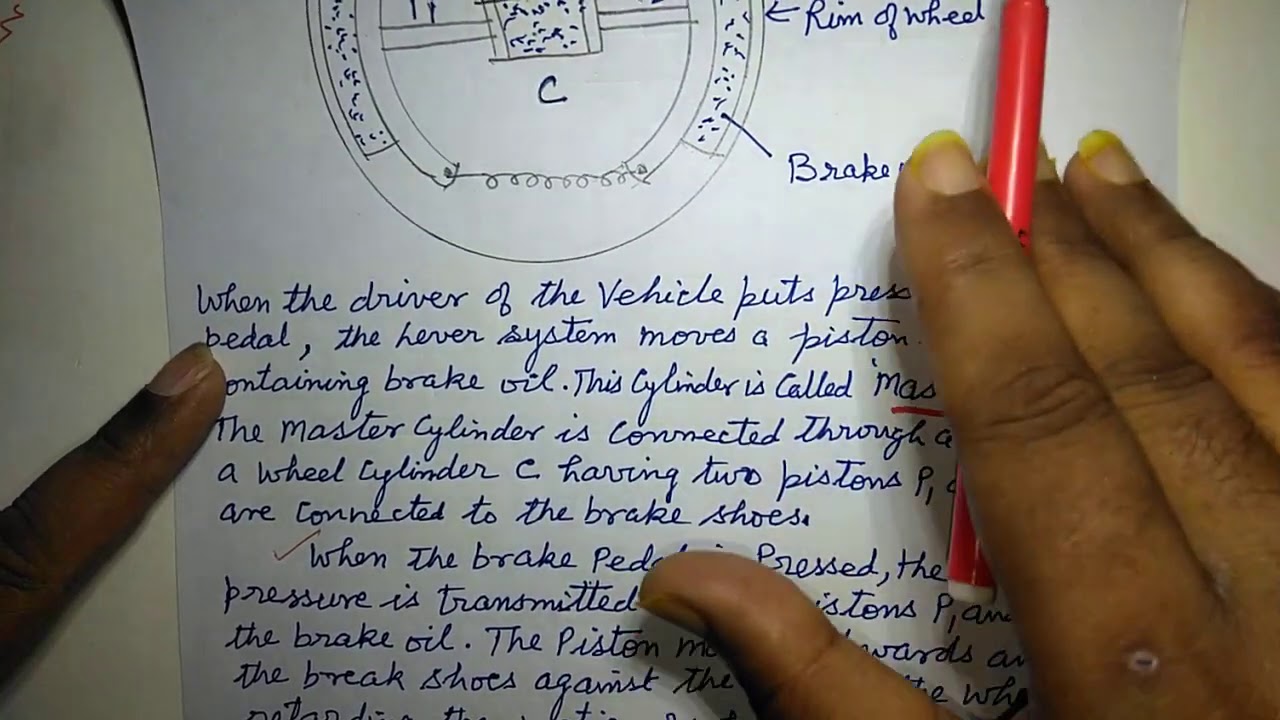 Rim of wheel
C
Brake
When the driver of the Vehicle puts press
pedal, the Lever system moves a piston
ontaining brake oil. This Cylinder is Called 'Mas
The Master Cylinder is Connected through a
a wheel Cylinder C having two pistons P₁
are Connected to the brake shoes.
When The brake Ped Pressed, the
pressure is transmitted istons P₁ and
the brake oil. The Piston mo wards an
the break shoes against the the whe
retarding the